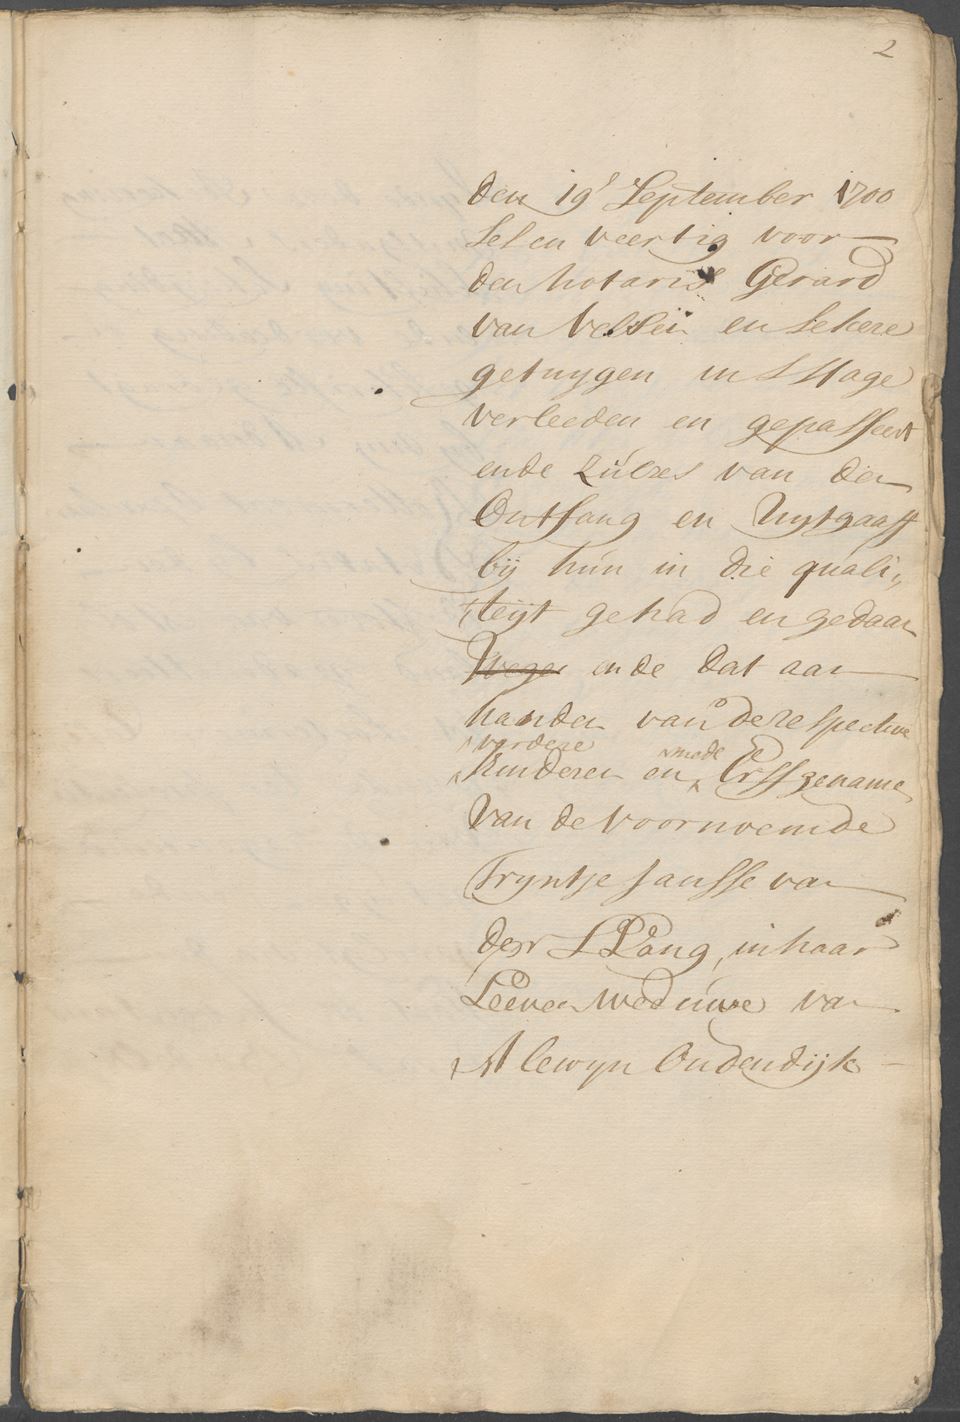 2
den 19e September 1700
ses en veertig voor
den notaris Gerard
van Velsen en sekere
getuygen in sHage
verleeden en gepasseert
ende zulx van den
Ontfang en Uytgaaff
bij hún in die quali„
teyt gehad en gedaan
Wegen ende dat aan
handen van de respective
verdere mede
kinderen en Erffgename
van de voornoemde
Tryntje Jansse van
der Lang, in haar
Leeven Weduwe van
Alewyn Oudendijk